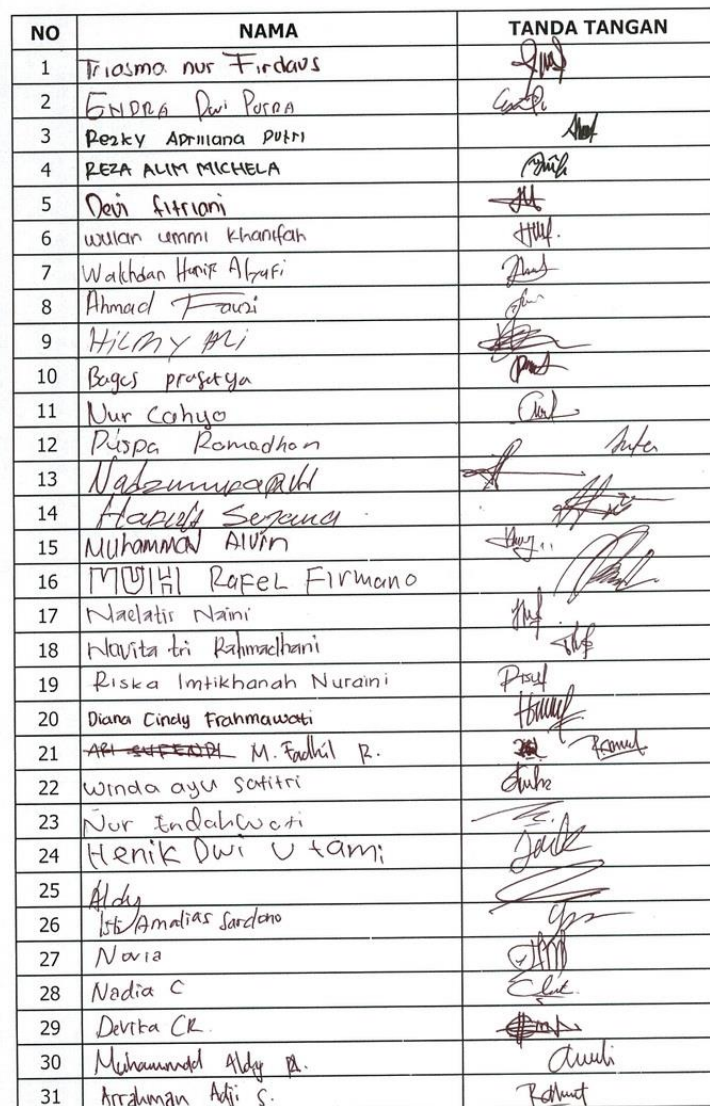 NO NAMA TANDA TANGAN
1 Triasma nur Firdaus
2 ENDRA Dwi PUTRA
3 Rezky Apriliana putri
4 REZA ALIM MICHELA
5 Devi fitriani
6 wulan ummi khanifah
7 Wakhdan Hanif
8 Ahmad Fauzi
9 HILMY ALI
10 Bagas prasetya
11 Nur Cahyo
12 Puspa Romadhon
13
14
15 Muhammad Alvin
16 MUH RafeL Firmano
17 Naelatis Naini
18 Novita tri Rahmadhani
19 Riska Imtikhanah Nuraini
20 Diana Cindy Frahmawati
21 ARI SUPENDI M. Fadhil R.
22 winda ayu Safitri
23 Nur Endahwati
24 Henik Dwi Utami
25 Aldy
26 Isti Amalias Sardono
27 Novia
28 Nadia C
29 Devita CR.
30 Muhammad Aldy A.
31 Arrahman Adji S.